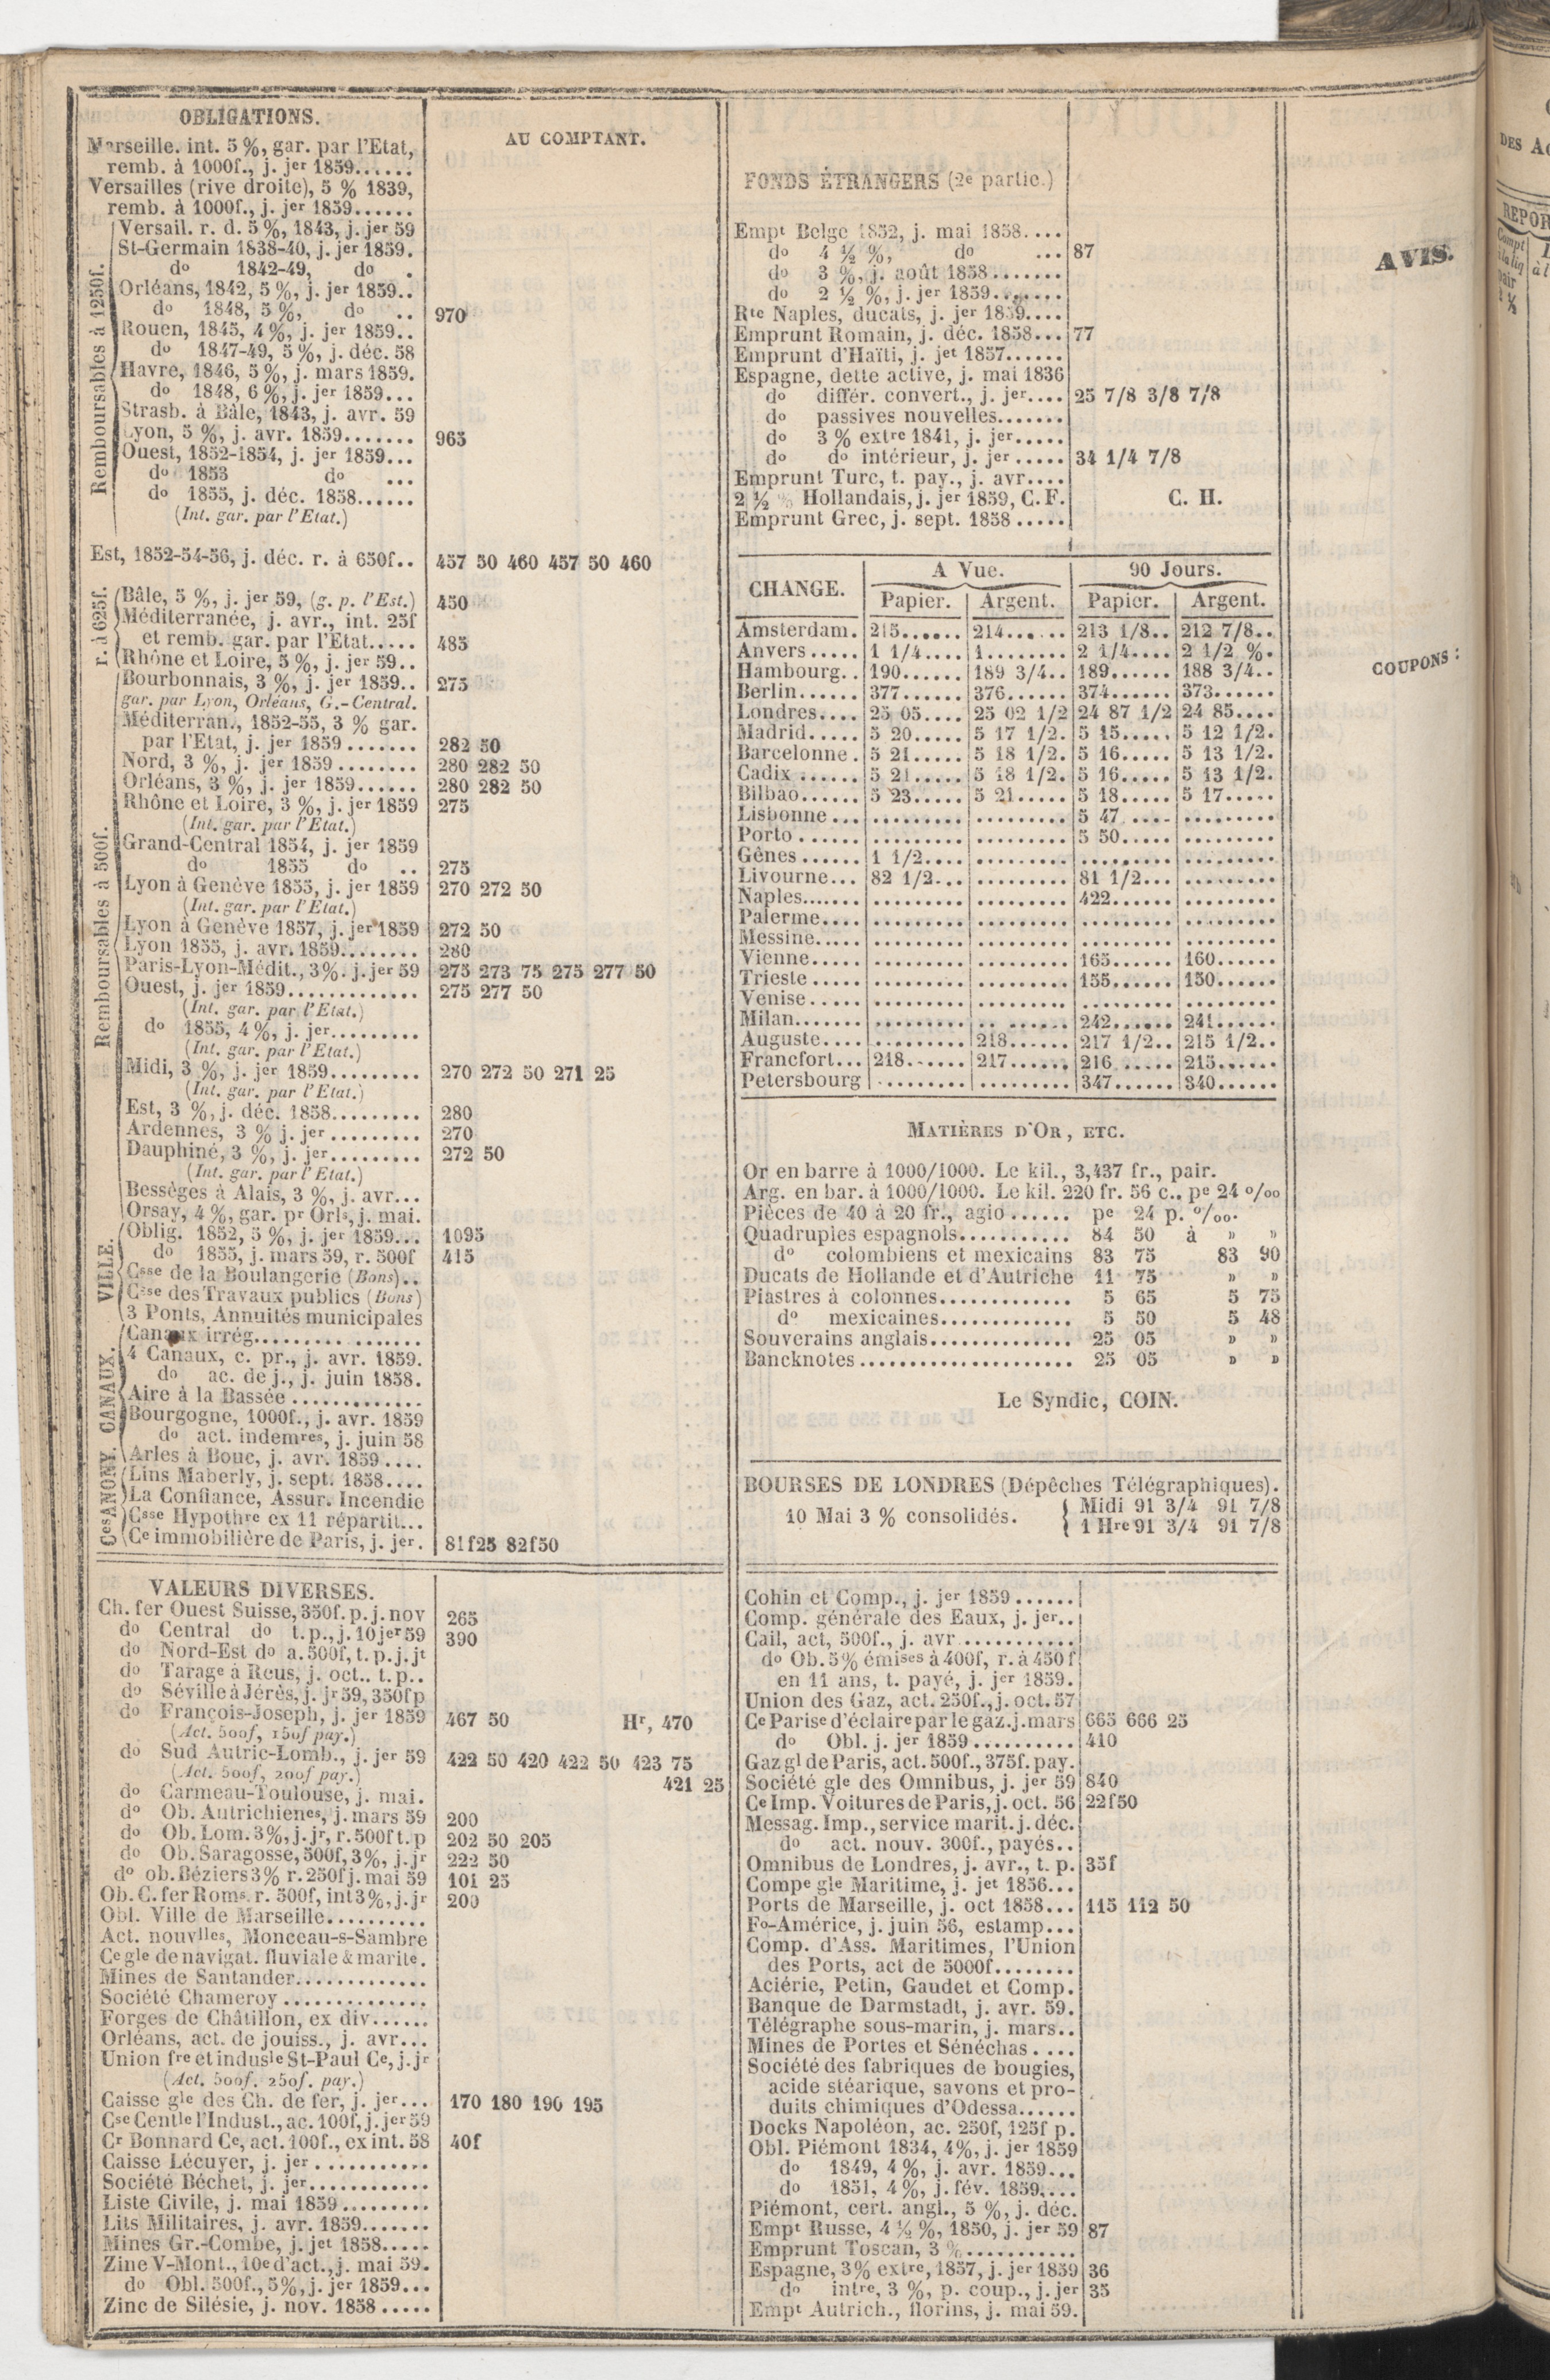 OBLIGATIONS.
AU COMPTANT.
Marseille. int. 5 %, gar. par l'Etat,
remb. à 1000f., j. jer 1859......
Versailles (rive droite), 5 % 1839,
remb. à 1000f., j. jer 1859......
Remboursables à 1250f.
Versail. r. d. 5 %, 1843, j. jer 59
St-Germain 1838-40, j. jer 1859.
do 1842-49, do .
Orléans, 1842, 5 %, j. jer 1859..
do 1848, 5 %, do .. 970
Rouen, 1845, 4 %, j. jer 1859..
do 1847-49, 5 %, j. déc. 58
Havre, 1846, 5 %, j. mars 1859.
do 1848, 6 %, j. jer 1859...
Strasb. à Bâle, 1843, j. avr. 59
Lyon, 5 %, j. avr. 1859....... 965
Ouest, 1852-1854, j. jer 1859...
do 1853 do ...
do 1855, j. déc. 1858......
(Int. gar. par l'Etat.)
Est, 1852-54-56, j. déc. r. à 650f.. 457 50 460 457 50 460
r. à 625f.
Bâle, 5 %, j. jer 59, (g. p. l'Est.) 450
Méditerranée, j. avr., int. 25f
et remb. gar. par l'Etat..... 485
Rhône et Loire, 5 %, j. jer 59..
Remboursables à 500f.
Bourbonnais, 3 %, j. jer 1859.. 275
gar. par Lyon, Orléans, G.-Central.
Méditerran., 1852-55, 3 % gar.
par l'Etat, j. jer 1859 ....... 282 50
Nord, 3 %, j. jer 1859 ........ 280 282 50
Orléans, 3 %, j. jer 1859...... 280 282 50
Rhône et Loire, 3 %, j. jer 1859 275
(Int. gar. par l'Etat.)
Grand-Central 1854, j. jer 1859
do 1855 do .. 275
Lyon à Genève 1855, j. jer 1859 270 272 50
(Int. gar. par l'Etat.)
Lyon à Genève 1857, j. jer 1859 272 50
Lyon 1855, j. avr. 1859........ 280
Paris-Lyon-Médit., 3 %. j. jer 59 275 273 75 275 277 50
Ouest, j. jer 1859............. 275 277 50
(Int. gar. par l'Etat.)
do 1855, 4 %, j. jer.........
(Int. gar. par l'Etat.)
Midi, 3 %, j. jer 1859......... 270 272 50 271 25
(Int. gar. par l'Etat.)
Est, 3 %, j. déc. 1858......... 280
Ardennes, 3 % j. jer ......... 270
Dauphiné, 3 %, j. jer......... 272 50
(Int. gar. par l'Etat.)
Bessèges à Alais, 3 %, j. avr...
Orsay, 4 %, gar. pr Orls, j. mai.
VILLE.
Oblig. 1852, 5 %, j. jer 1859... 1095
do 1855, j. mars 59, r. 500f 415
Csse de la Boulangerie (Bons)..
Csse des Travaux publics (Bons)
3 Ponts, Annuités municipales
CANAUX.
Canaux irrég.................
4 Canaux, c. pr., j. avr. 1859.
do ac. de j., j. juin 1858.
Aire à la Bassée .............
Bourgogne, 1000f., j. avr. 1859
do act. indemres, j. juin 58
Arles à Bouc, j. avr. 1859 ....
Ces ANONY.
Lins Maberly, j. sept. 1858....
La Confiance, Assur. Incendie
Csse Hypothre ex 11 répartit...
Ce immobilière de Paris, j. jer. 81f25 82f50
VALEURS DIVERSES.
Ch. fer Ouest Suisse, 350f. p. j. nov 265
do Central do t. p., j. 10 jer 59 390
do Nord-Est do a. 500f, t. p. j. jt
do Tarage à Reus, j. oct.. t. p..
do Séville à Jérès, j. jr 59, 350f p
do François-Joseph, j. jer 1859 467 50 Hr, 470
(Act. 500f, 150f pay.)
do Sud Autric-Lomb., j. jer 59 422 50 420 422 50 423 75
(Act. 500f, 200f pay.) 421 25
do Carmeau-Toulouse, j. mai.
do Ob. Autrichienes, j. mars 59 200
do Ob. Lom. 3%, j. jr, r. 500f t. p 202 50 205
do Ob. Saragosse, 500f, 3%, j. jr 222 50
do ob. Béziers 3% r. 250f j. mai 59 101 25
Ob. C. fer Roms. r. 500f, int 3%, j. jr 200
Obl. Ville de Marseille..........
Act. nouvlles, Monceau-s-Sambre
Ce gle de navigat. fluviale & marite.
Mines de Santander.............
Société Chameroy ..............
Forges de Châtillon, ex div......
Orléans, act. de jouiss., j. avr...
Union fre et indusle St-Paul Ce, j. jr
(Act. 500f. 250f. pay.)
Caisse gle des Ch. de fer, j. jer... 170 180 190 195
Cse Centle l'Indust., ac. 100f, j. jer 59
Cr Bonnard Ce, act. 100f., ex int. 58 40f
Caisse Lécuyer, j. jer ...........
Société Béchet, j. jer............
Liste Civile, j. mai 1859.........
Lits Militaires, j. avr. 1859.......
Mines Gr.-Combe, j. jet 1858.....
Zinc V-Mont., 10e d'act., j. mai 59.
do Obl. 500f., 5%, j. jer 1859...
Zinc de Silésie, j. nov. 1858 .....
FONDS ÉTRANGERS (2e partie.)
Empt Belge 1852, j. mai 1858....
do 4 ½ %, do ... 87
do 3 %, j. août 1858.......
do 2 ½ %, j. jer 1859.......
Rte Naples, ducats, j. jer 1859....
Emprunt Romain, j. déc. 1858... 77
Emprunt d'Haïti, j. jet 1857......
Espagne, dette active, j. mai 1836
do différ. convert., j. jer.... 25 7/8 3/8 7/8
do passives nouvelles.......
do 3 % extre 1841, j. jer.....
do do intérieur, j. jer ..... 34 1/4 7/8
Emprunt Turc, t. pay., j. avr....
2 ½ % Hollandais, j. jer 1859, C. F. C. H.
Emprunt Grec, j. sept. 1858 .....
CHANGE. A Vue. 90 Jours.
Papier. Argent. Papier. Argent.
Amsterdam. 215...... 214...... 213 1/8.. 212 7/8..
Anvers..... 1 1/4.... 1........ 2 1/4.... 2 1/2 %.
Hambourg.. 190...... 189 3/4.. 189...... 188 3/4..
Berlin...... 377...... 376...... 374...... 373......
Londres.... 25 05.... 25 02 1/2 24 87 1/2 24 85....
Madrid..... 5 20..... 5 17 1/2. 5 15..... 5 12 1/2.
Barcelonne. 5 21..... 5 18 1/2. 5 16..... 5 13 1/2.
Cadix ...... 5 21..... 5 18 1/2. 5 16..... 5 13 1/2.
Bilbao...... 5 23..... 5 21..... 5 18..... 5 17.....
Lisbonne ... ......... ......... 5 47 .... .........
Porto ...... ......... ......... 5 50..... .........
Gênes ...... 1 1/2.... ......... ......... .........
Livourne... 82 1/2... ......... 81 1/2... .........
Naples....... ......... ......... 422...... .........
Palerme.... ......... ......... ......... .........
Messine..... ......... ......... ......... .........
Vienne..... ......... ......... 165...... 160......
Trieste ..... ......... ......... 155...... 150......
Venise..... ......... ......... ......... .........
Milan....... ......... ......... 242...... 241......
Auguste.... ......... 218...... 217 1/2.. 215 1/2..
Francfort... 218...... 217...... 216 ..... 215......
Petersbourg ......... ......... 347...... 340......
MATIÈRES D'OR, ETC.
Or en barre à 1000/1000. Le kil., 3,437 fr., pair.
Arg. en bar. à 1000/1000. Le kil. 220 fr. 56 c., pe 24 o/oo
Pièces de 40 à 20 fr., agio ...... pe 24 p. o/oo.
Quadruples espagnols........... 84 50 à » »
do colombiens et mexicains 83 75 83 90
Ducats de Hollande et d'Autriche 11 75 » »
Piastres à colonnes............. 5 65 5 75
do mexicaines............. 5 50 5 48
Souverains anglais.............. 25 05 » »
Bancknotes ..................... 25 05 » »
Le Syndic, COIN.
BOURSES DE LONDRES (Dépêches Télégraphiques).
10 Mai 3 % consolidés. Midi 91 3/4 91 7/8
1 Hre 91 3/4 91 7/8
Cohin et Comp., j. jer 1859 ......
Comp. générale des Eaux, j. jer..
Cail, act, 500f., j. avr ...........
do Ob. 5% émises à 400f, r. à 450f
en 11 ans, t. payé, j. jer 1859.
Union des Gaz, act. 250f., j. oct. 57
Ce Parise d'éclaire par le gaz. j. mars 665 666 25
do Obl. j. jer 1859 .......... 410
Gaz gl de Paris, act. 500f., 375f. pay.
Société gle des Omnibus, j. jer 59 840
Ce Imp. Voitures de Paris, j. oct. 56 22f50
Messag. Imp., service marit. j. déc.
do act. nouv. 300f., payés..
Omnibus de Londres, j. avr., t. p. 35f
Compe gle Maritime, j. jet 1856...
Ports de Marseille, j. oct 1858... 115 112 50
Fo-Américe, j. juin 56, estamp...
Comp. d'Ass. Maritimes, l'Union
des Ports, act de 5000f........
Aciérie, Petin, Gaudet et Comp.
Banque de Darmstadt, j. avr. 59.
Télégraphe sous-marin, j. mars..
Mines de Portes et Sénéchas ....
Société des fabriques de bougies,
acide stéarique, savons et pro-
duits chimiques d'Odessa......
Docks Napoléon, ac. 250f, 125f p.
Obl. Piémont 1834, 4%, j. jer 1859
do 1849, 4 %, j. avr. 1859...
do 1851, 4 %, j. fév. 1859....
Piémont, cert. angl., 5 %, j. déc.
Empt Russe, 4 ½ %, 1850, j. jer 59 87
Emprunt Toscan, 3 %...........
Espagne, 3% extre, 1857, j. jer 1859 36
do intre, 3 %, p. coup., j. jer 35
Empt Autrich., florins, j. mai 59.
AVIS.
COUPONS :
DES
REPOR
Compt
à la liq
pair